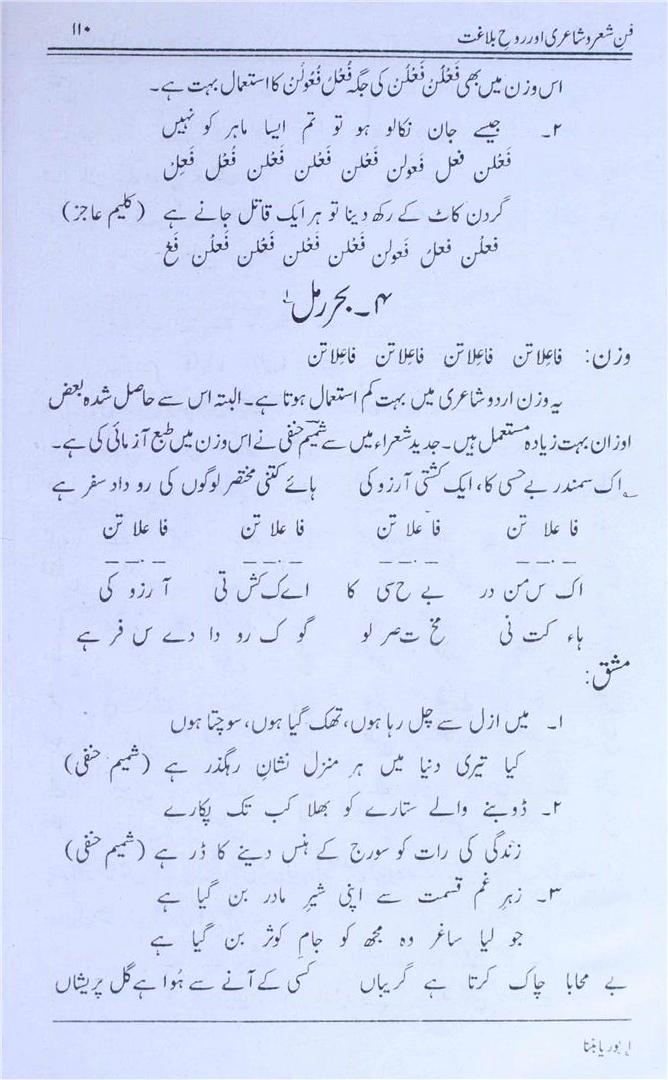 فنِ شعر و شاعری اور روحِ بلاغت ۱۱۰
اس وزن میں بھی فَعْلُنْ فَعْلُنْ کی جگہ فُعْلُ فُعُولُنْ کا استعمال بہت ہے۔
۲۔ جیسے جان نکالو ہو تو تم ایسا ماہر کو نہیں
فَعْلن فعل فَعولن فَعْلن فَعْلن فَعْلن فُعْلِ فَعِلُ
گردن کاٹ کے رکھ دینا تو ہر ایک قاتل جانے ہے (کلیم عاجز)
فعْلن فعْلُ فَعولن فَعْلن فَعْلن فَعْلن فَعْلن فَعْ
۴۔ بحر رمل ۱؎
وزن: فاعلاتن فاعلاتن فاعلاتن فاعلاتن
یہ وزن اردو شاعری میں بہت کم استعمال ہوتا ہے۔ البتہ اس سے حاصل شدہ بعض
اوزان بہت زیادہ مستعمل ہیں۔ جدید شعراء میں سے شمیم حنفی نے اس وزن میں طبع آزمائی کی ہے۔
؎ اک سمندر بے حسی کا، ایک کشتی آرزو کی ہائے کتنی مختصر لوگوں کی روداد سفر ہے
فا علا تن فا علا تن فا علا تن فا علا تن
اک س من در بے ح سی کا اے ک کش تی آ رزو کی
ہاء کت نی مخ ت صر لو گو ک رو دا دے س فر ہے
مشق:
۱۔ میں ازل سے چل رہا ہوں، تھک گیا ہوں، سوچتا ہوں
کیا تیری دنیا میں ہر منزل نشانِ رہگذر ہے (شمیم حنفی)
۲۔ ڈوبنے والے ستارے کو بھلا کب تک پکارے
زندگی کی رات کو سورج کے ہنس دینے کا ڈر ہے (شمیم حنفی)
۳۔ زہرِ غم قسمت سے اپنی شیرِ مادر بن گیا ہے
جو لیا ساغر وہ مجھ کو جامِ کوثر بن گیا ہے
بے محابا چاک کرتا ہے گریباں کسی کے آنے سے ہُوا ہے گل پریشاں
۱؎ بوریا بننا